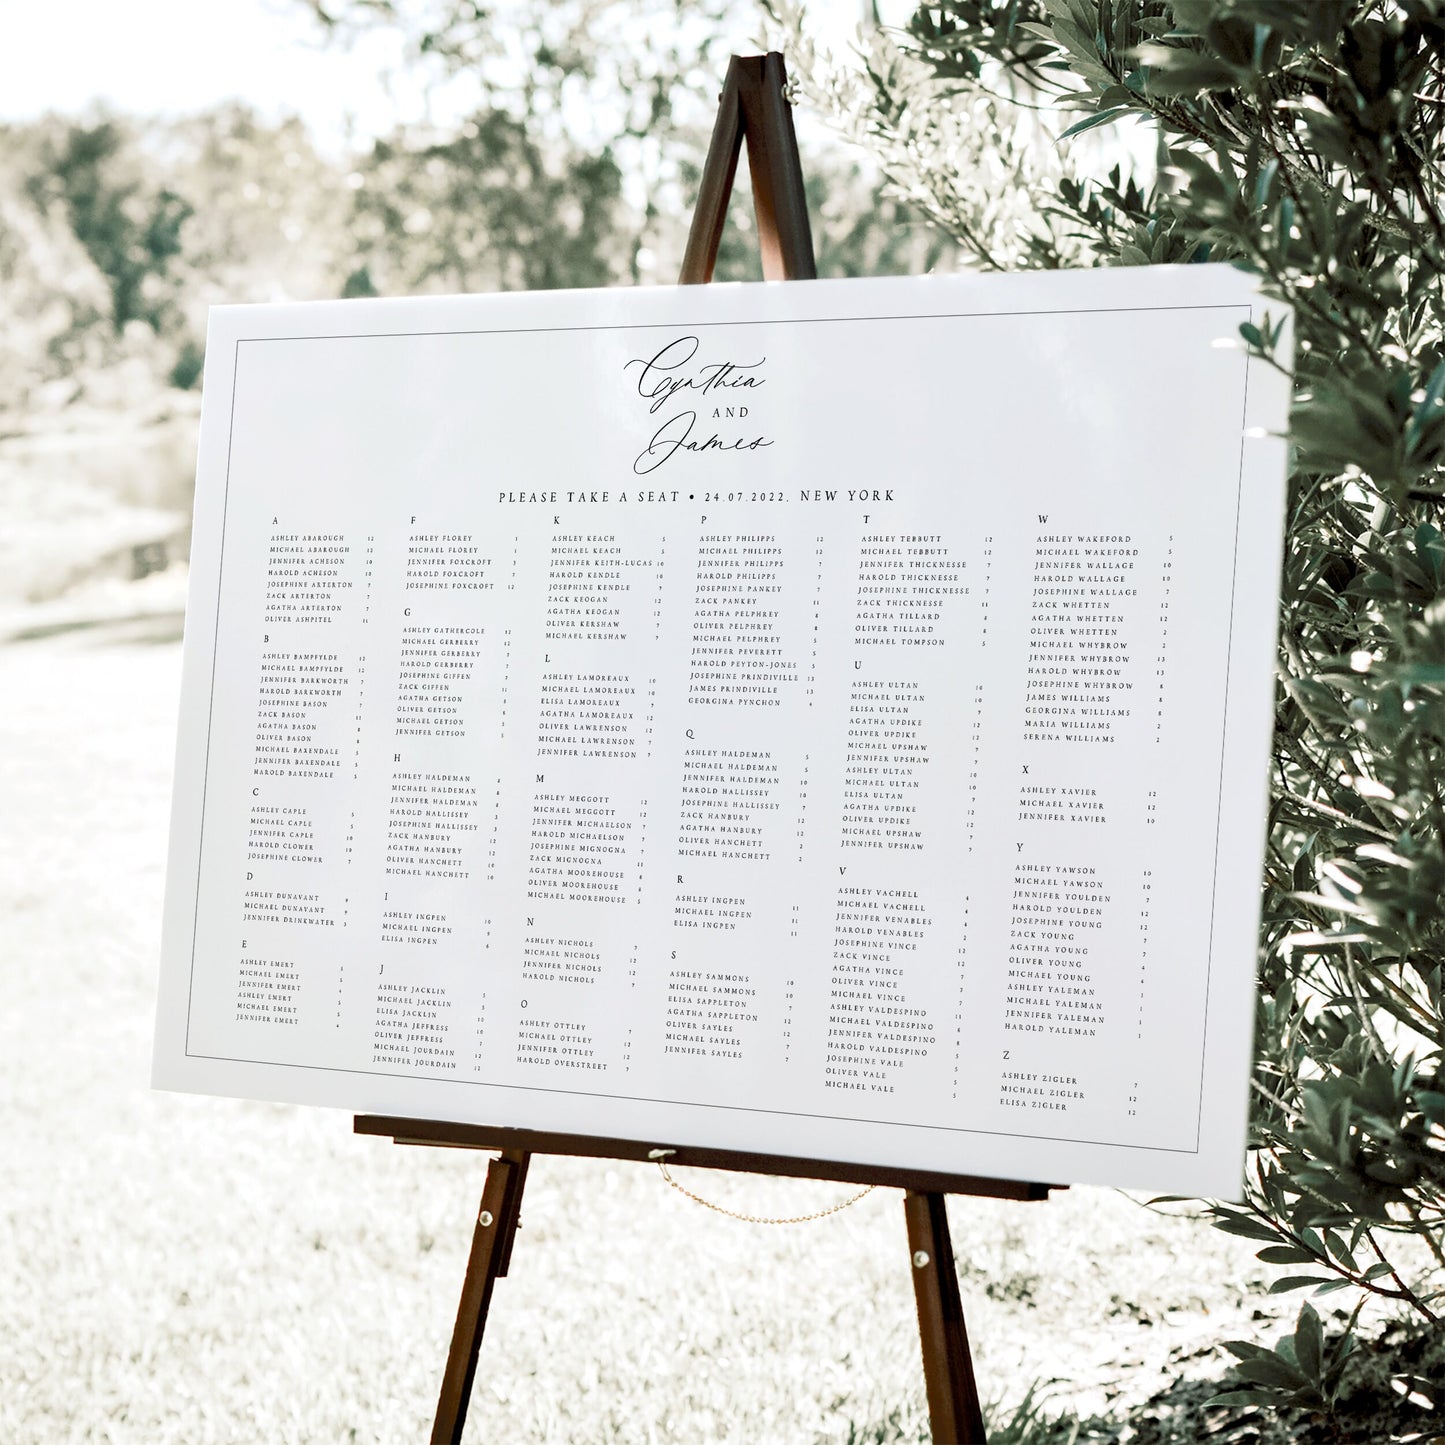 Cynthia
AND
James
PLEASE TAKE A SEAT • 24.07.2022. NEW YORK
A
ASHLEY ABAROUGH 12
MICHAEL ABAROUGH 12
JENNIFER ACHESON 10
HAROLD ACHESON 10
JOSEPHINE ARTERTON 7
ZACK ARTERTON 7
AGATHA ARTERTON 7
OLIVER ASHPITEL 11
B
ASHLEY BAMPFYLDE 12
MICHAEL BAMPFYLDE 12
JENNIFER BARKWORTH 7
HAROLD BARKWORTH 7
JOSEPHINE BASON 7
ZACK BASON 11
AGATHA BASON 8
OLIVER BASON 8
MICHAEL BAXENDALE 5
JENNIFER BAXENDALE 5
HAROLD BAXENDALE 5
C
ASHLEY CAPLE 5
MICHAEL CAPLE 5
JENNIFER CAPLE 10
HAROLD CLOWER 10
JOSEPHINE CLOWER 7
D
ASHLEY DUNAVANT 9
MICHAEL DUNAVANT 9
JENNIFER DRINKWATER 3
E
ASHLEY EMERT 5
MICHAEL EMERT 5
JENNIFER EMERT 4
ASHLEY EMERT 5
MICHAEL EMERT 5
JENNIFER EMERT 4
F
ASHLEY FLOREY 1
MICHAEL FLOREY 1
JENNIFER FOXCROFT 3
HAROLD FOXCROFT 7
JOSEPHINE FOXCROFT 12
G
ASHLEY GATHERCOLE 12
MICHAEL GERBERRY 12
JENNIFER GERBERRY 7
HAROLD GERBERRY 7
JOSEPHINE GIFFEN 7
ZACK GIFFEN 11
AGATHA GETSON 8
OLIVER GETSON 8
MICHAEL GETSON 5
JENNIFER GETSON 5
H
ASHLEY HALDEMAN 8
MICHAEL HALDEMAN 8
JENNIFER HALDEMAN 8
HAROLD HALLISSEY 3
JOSEPHINE HALLISSEY 3
ZACK HANBURY 12
AGATHA HANBURY 12
OLIVER HANCHETT 10
MICHAEL HANCHETT 10
I
ASHLEY INGPEN 10
MICHAEL INGPEN 9
ELISA INGPEN 6
J
ASHLEY JACKLIN 5
MICHAEL JACKLIN 5
ELISA JACKLIN 10
AGATHA JEFFRESS 10
OLIVER JEFFRESS 7
MICHAEL JOURDAIN 12
JENNIFER JOURDAIN 12
K
ASHLEY KEACH 5
MICHAEL KEACH 5
JENNIFER KEITH-LUCAS 10
HAROLD KENDLE 10
JOSEPHINE KENDLE 7
ZACK KEOGAN 12
AGATHA KEOGAN 12
OLIVER KERSHAW 7
MICHAEL KERSHAW 7
L
ASHLEY LAMOREAUX 10
MICHAEL LAMOREAUX 10
ELISA LAMOREAUX 7
AGATHA LAMOREAUX 12
OLIVER LAWRENSON 12
MICHAEL LAWRENSON 7
JENNIFER LAWRENSON 7
M
ASHLEY MEGGOTT 12
MICHAEL MEGGOTT 12
JENNIFER MICHAELSON 7
HAROLD MICHAELSON 7
JOSEPHINE MIGNOGNA 7
ZACK MIGNOGNA 11
AGATHA MOOREHOUSE 8
OLIVER MOOREHOUSE 8
MICHAEL MOOREHOUSE 5
N
ASHLEY NICHOLS 7
MICHAEL NICHOLS 12
JENNIFER NICHOLS 12
HAROLD NICHOLS 7
O
ASHLEY OTTLEY 7
MICHAEL OTTLEY 12
JENNIFER OTTLEY 12
HAROLD OVERSTREET 7
P
ASHLEY PHILIPPS 12
MICHAEL PHILIPPS 12
JENNIFER PHILIPPS 7
HAROLD PHILIPPS 7
JOSEPHINE PANKEY 7
ZACK PANKEY 11
AGATHA PELPHREY 8
OLIVER PELPHREY 8
MICHAEL PELPHREY 5
JENNIFER PEVERETT 5
HAROLD PEYTON-JONES 5
JOSEPHINE PRINDIVILLE 13
JAMES PRINDIVILLE 13
GEORGINA PYNCHON 4
Q
ASHLEY HALDEMAN 5
MICHAEL HALDEMAN 5
JENNIFER HALDEMAN 10
HAROLD HALLISSEY 10
JOSEPHINE HALLISSEY 7
ZACK HANBURY 12
AGATHA HANBURY 12
OLIVER HANCHETT 2
MICHAEL HANCHETT 2
R
ASHLEY INGPEN 11
MICHAEL INGPEN 11
ELISA INGPEN 11
S
ASHLEY SAMMONS 10
MICHAEL SAMMONS 10
ELISA SAPPLETON 7
AGATHA SAPPLETON 12
OLIVER SAYLES 12
MICHAEL SAYLES 7
JENNIFER SAYLES 7
T
ASHLEY TEBBUTT 12
MICHAEL TEBBUTT 12
JENNIFER THICKNESSE 7
HAROLD THICKNESSE 7
JOSEPHINE THICKNESSE 7
ZACK THICKNESSE 11
AGATHA TILLARD 8
OLIVER TILLARD 8
MICHAEL TOMPSON 5
U
ASHLEY ULTAN 10
MICHAEL ULTAN 10
ELISA ULTAN 7
AGATHA UPDIKE 12
OLIVER UPDIKE 12
MICHAEL UPSHAW 7
JENNIFER UPSHAW 7
ASHLEY ULTAN 10
MICHAEL ULTAN 10
ELISA ULTAN 7
AGATHA UPDIKE 12
OLIVER UPDIKE 12
MICHAEL UPSHAW 7
JENNIFER UPSHAW 7
V
ASHLEY VACHELL 4
MICHAEL VACHELL 4
JENNIFER VENABLES 4
HAROLD VENABLES 2
JOSEPHINE VINCE 12
ZACK VINCE 12
AGATHA VINCE 7
OLIVER VINCE 7
MICHAEL VINCE 7
ASHLEY VALDESPINO 11
MICHAEL VALDESPINO 8
JENNIFER VALDESPINO 8
HAROLD VALDESPINO 5
JOSEPHINE VALE 5
OLIVER VALE 5
MICHAEL VALE 5
W
ASHLEY WAKEFORD 5
MICHAEL WAKEFORD 5
JENNIFER WALLAGE 10
HAROLD WALLAGE 10
JOSEPHINE WALLAGE 7
ZACK WHETTEN 12
AGATHA WHETTEN 12
OLIVER WHETTEN 2
MICHAEL WHYBROW 2
JENNIFER WHYBROW 13
HAROLD WHYBROW 13
JOSEPHINE WHYBROW 8
JAMES WILLIAMS 8
GEORGINA WILLIAMS 8
MARIA WILLIAMS 2
SERENA WILLIAMS 2
X
ASHLEY XAVIER 12
MICHAEL XAVIER 12
JENNIFER XAVIER 10
Y
ASHLEY YAWSON 10
MICHAEL YAWSON 10
JENNIFER YOULDEN 7
HAROLD YOULDEN 12
JOSEPHINE YOUNG 12
ZACK YOUNG 7
AGATHA YOUNG 7
OLIVER YOUNG 4
MICHAEL YOUNG 4
ASHLEY YALEMAN 1
MICHAEL YALEMAN 1
JENNIFER YALEMAN 1
HAROLD YALEMAN 1
Z
ASHLEY ZIGLER 7
MICHAEL ZIGLER 12
ELISA ZIGLER 12